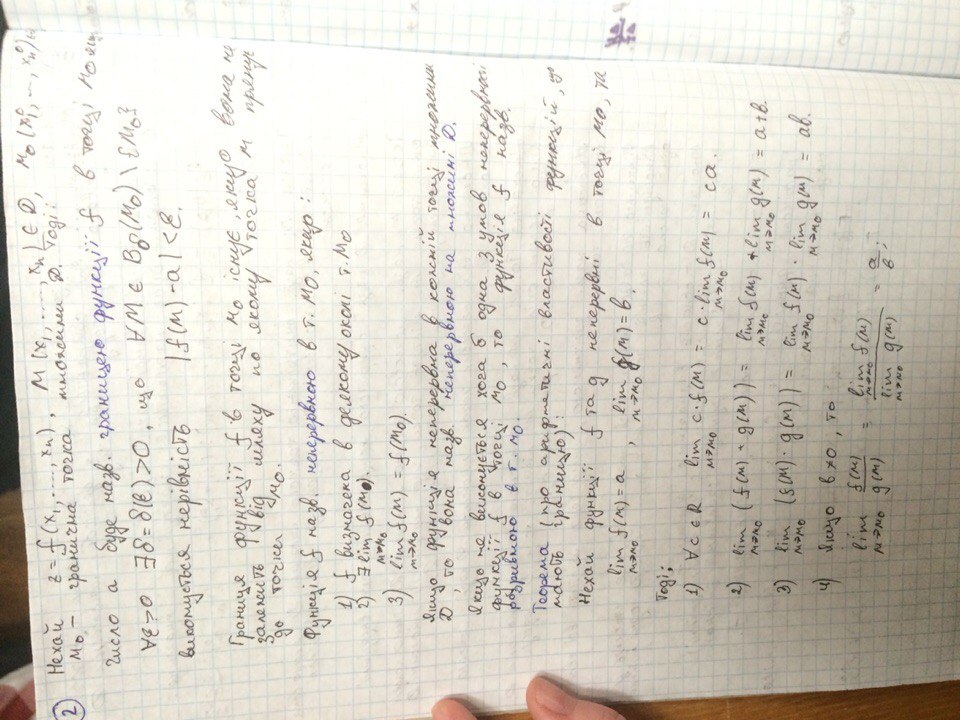 2
Нехай z = f(x₁, ..., xₙ), M(x₁, ..., xₙ) ∈ D, M₀(x₁⁰, ..., xₙ⁰)
M₀ – гранична точка множини D. Тоді:
число a буде назв. границею функції f в точці M₀
∀ε>0 ∃δ=δ(ε)>0, що ∀M ∈ B_δ(M₀) \ {M₀}
виконується нерівність |f(M) - a| < ε.
Границя функції f в точці M₀ існує, якщо вона не
залежить від шляху по якому точка M
до точки M₀.
Функція f назв. неперервною в т. M₀, якщо:
1) f визначена в деякому околі т. M₀
2) ∃ lim_{M→M₀} f(M).
3) lim_{M→M₀} f(M) = f(M₀).
Якщо функція неперервна в кожній точці множини
D, то вона назв. неперервною на множині D.
Якщо не виконується хоча б одна з умов неперервності
функції f в точці M₀, то функція f назв.
розривною в т. M₀.
Теорема (про арифметичні властивості функцій, що
мають границю):
Нехай функції f та g неперервні в точці M₀, та
lim_{M→M₀} f(M) = a, lim_{M→M₀} g(M) = b.
Тоді:
1) ∀c ∈ R lim_{M→M₀} c·f(M) = c·lim_{M→M₀} f(M) = ca.
2) lim_{M→M₀} (f(M) + g(M)) = lim_{M→M₀} f(M) + lim_{M→M₀} g(M) = a+b.
3) lim_{M→M₀} (f(M) · g(M)) = lim_{M→M₀} f(M) · lim_{M→M₀} g(M) = ab.
4) Якщо b≠0, то
lim_{M→M₀} f(M)/g(M) = lim_{M→M₀} f(M) / lim_{M→M₀} g(M) = a/b;